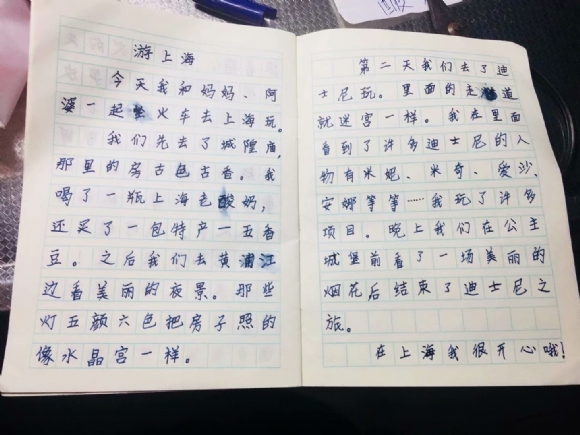 游上海
今天我和妈妈、阿
婆一起火车去上海玩。
我们先去了城隍庙，
那里的房古色古香。我
喝了一瓶上海老酸奶，
还买了一包特产一五香
豆。之后我们去黄浦江
边看美丽的夜景。那些
灯五颜六色把房子照的
像水晶宫一样。
第二天我们去了迪
士尼玩。里面的走道
就迷宫一样。我在里面
看到了许多迪士尼的人
物有米妮、米奇、爱沙、
安娜等等……我玩了许多
项目。晚上我们在公主
城堡前看了一场美丽的
烟花后结束了迪士尼之
旅。
在上海我很开心哦！